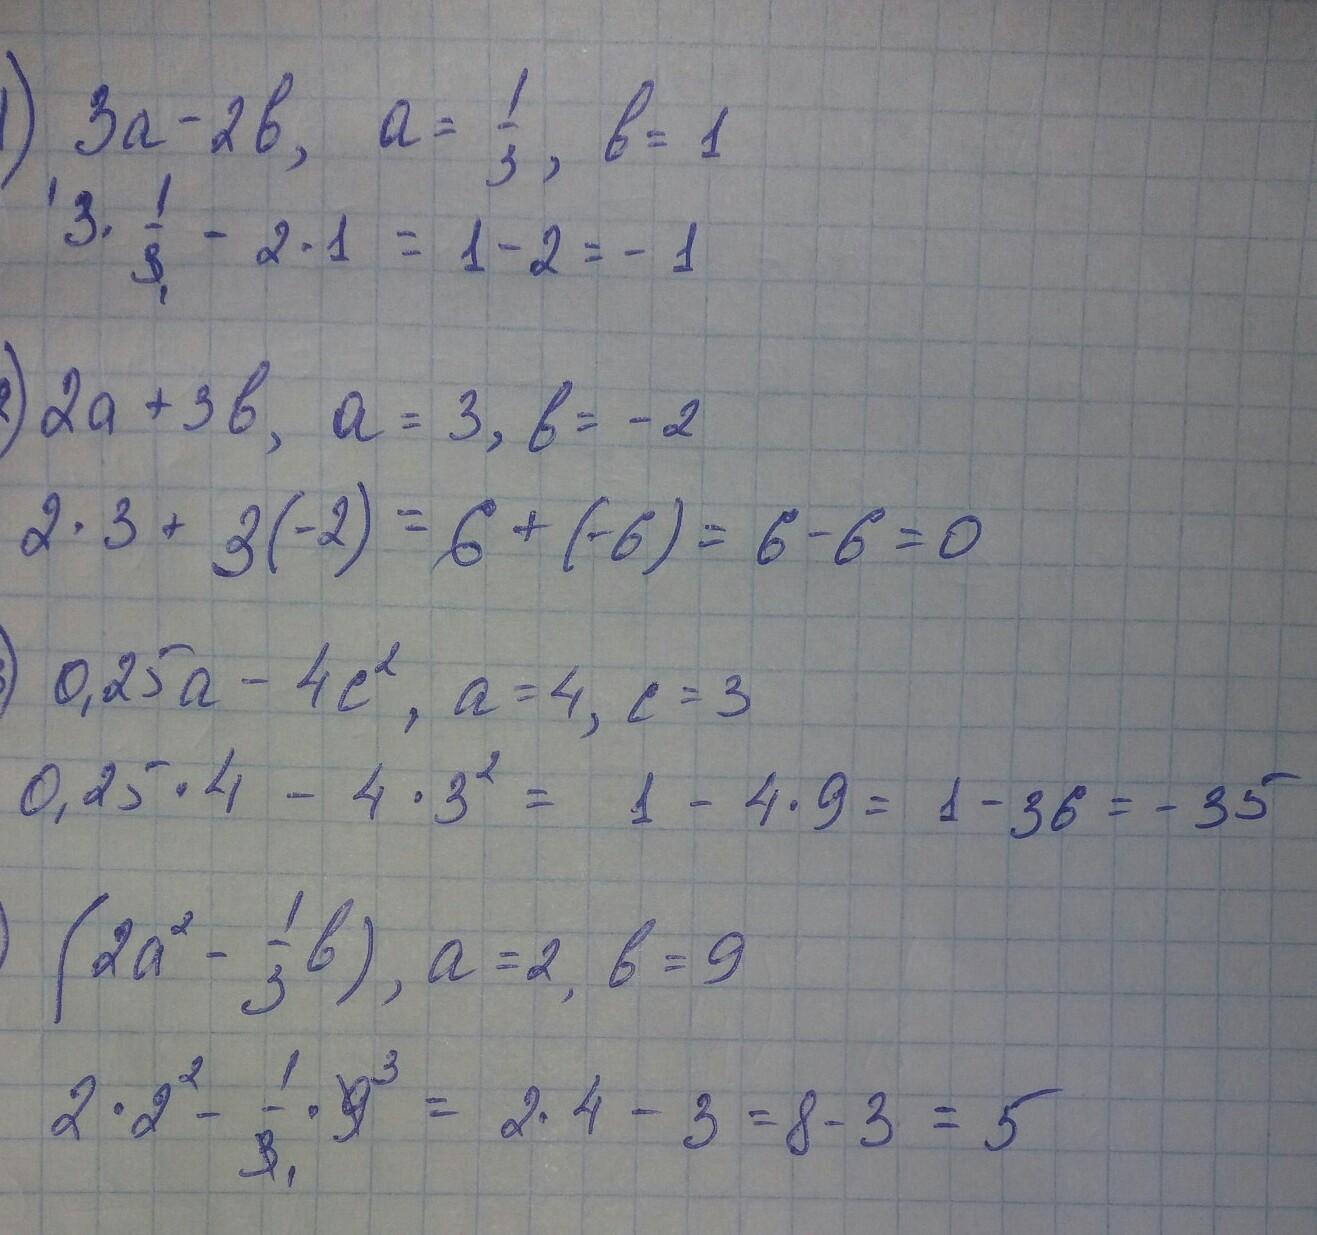 1) 3a - 2в, a = 1/3, в = 1
3 · 1/3 - 2 · 1 = 1 - 2 = - 1
2) 2a + 3в, a = 3, в = -2
2 · 3 + 3(-2) = 6 + (-6) = 6 - 6 = 0
3) 0,25a - 4c², a = 4, c = 3
0,25 · 4 - 4 · 3² = 1 - 4 · 9 = 1 - 36 = - 35
) (2a² - 1/3 в), a = 2, в = 9
2 · 2² - 1/3 · 9 = 2 · 4 - 3 = 8 - 3 = 5